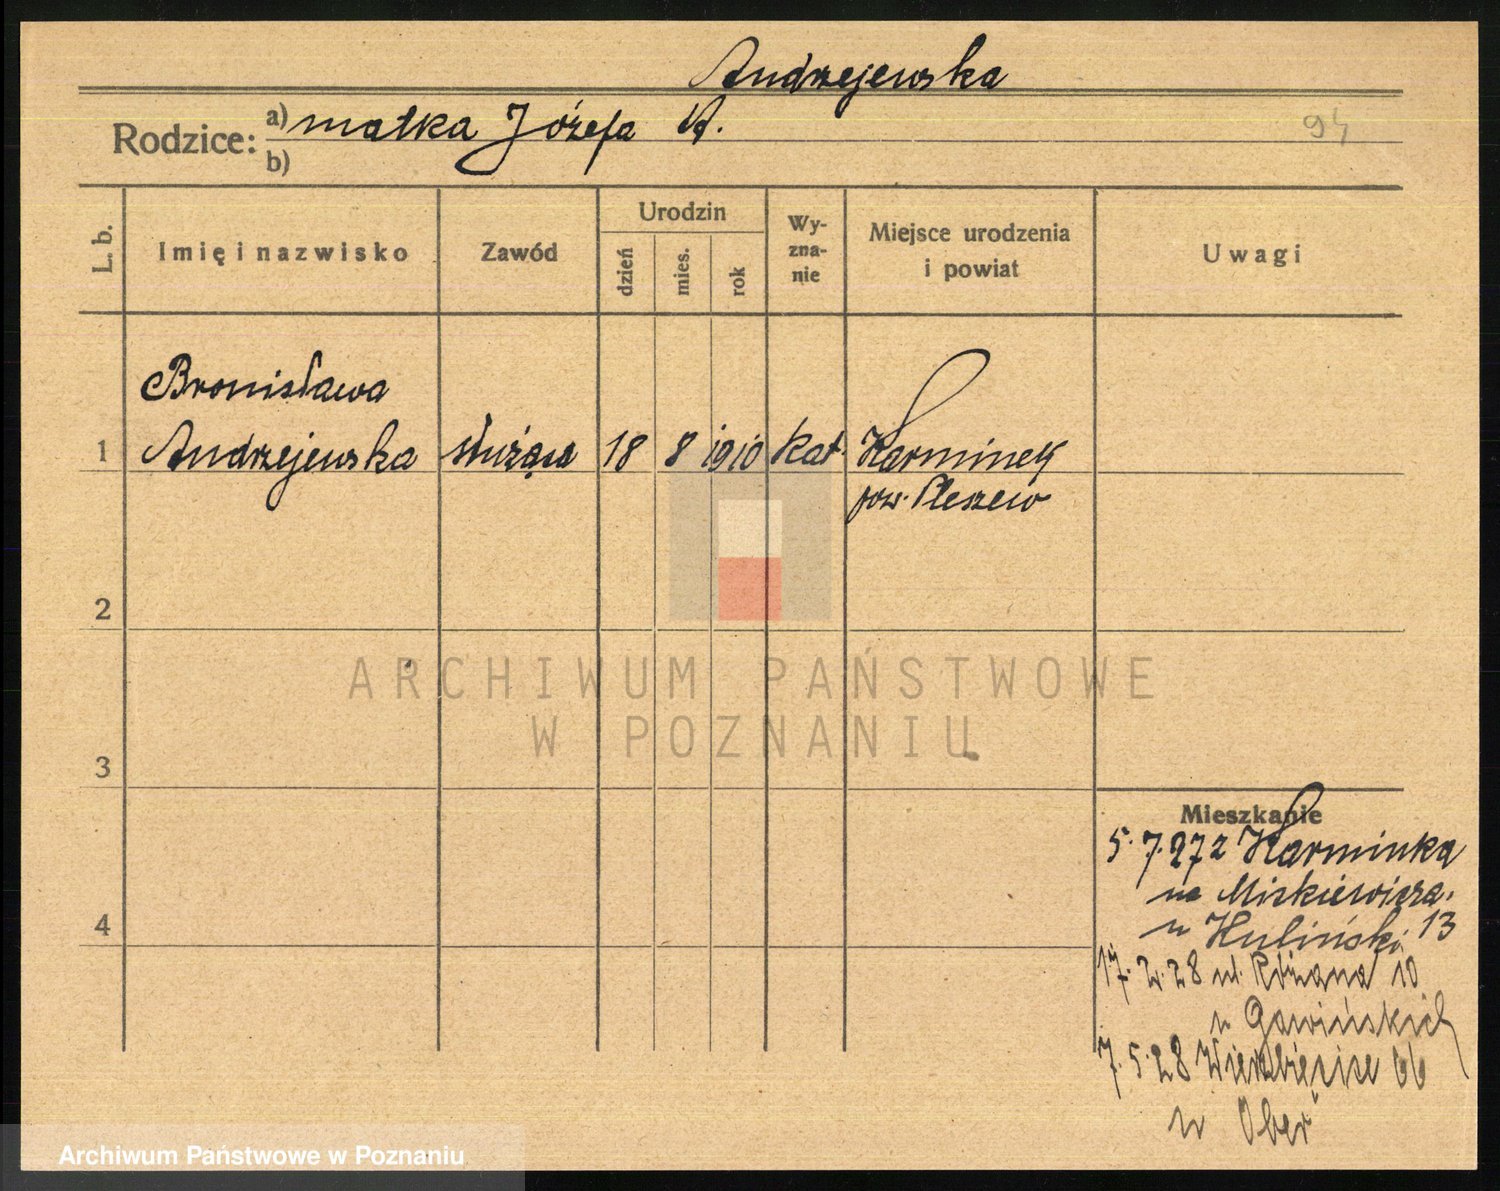 Andrzejewska
Rodzice: a) matka Józefa A.
b)
94
L. b.
Imię i nazwisko
Zawód
Urodzin
dzień
mies.
rok
Wy-
zna-
nie
Miejsce urodzenia
i powiat
Uwagi
Bronisława
1 Andrzejewska służąca 18 8 1910 kat. Karminek
pow. Pleszew
2
3
4
Mieszkanie
5.7.27 z Karminka
na Mickiewicza
u Huliński 13
17.2.28 ul. Różana 10
u Gawińskich
7.5.28 Wierzbięcice 66
u Ober
ARCHIWUM PAŃSTWOWE
W POZNANIU
Archiwum Państwowe w Poznaniu